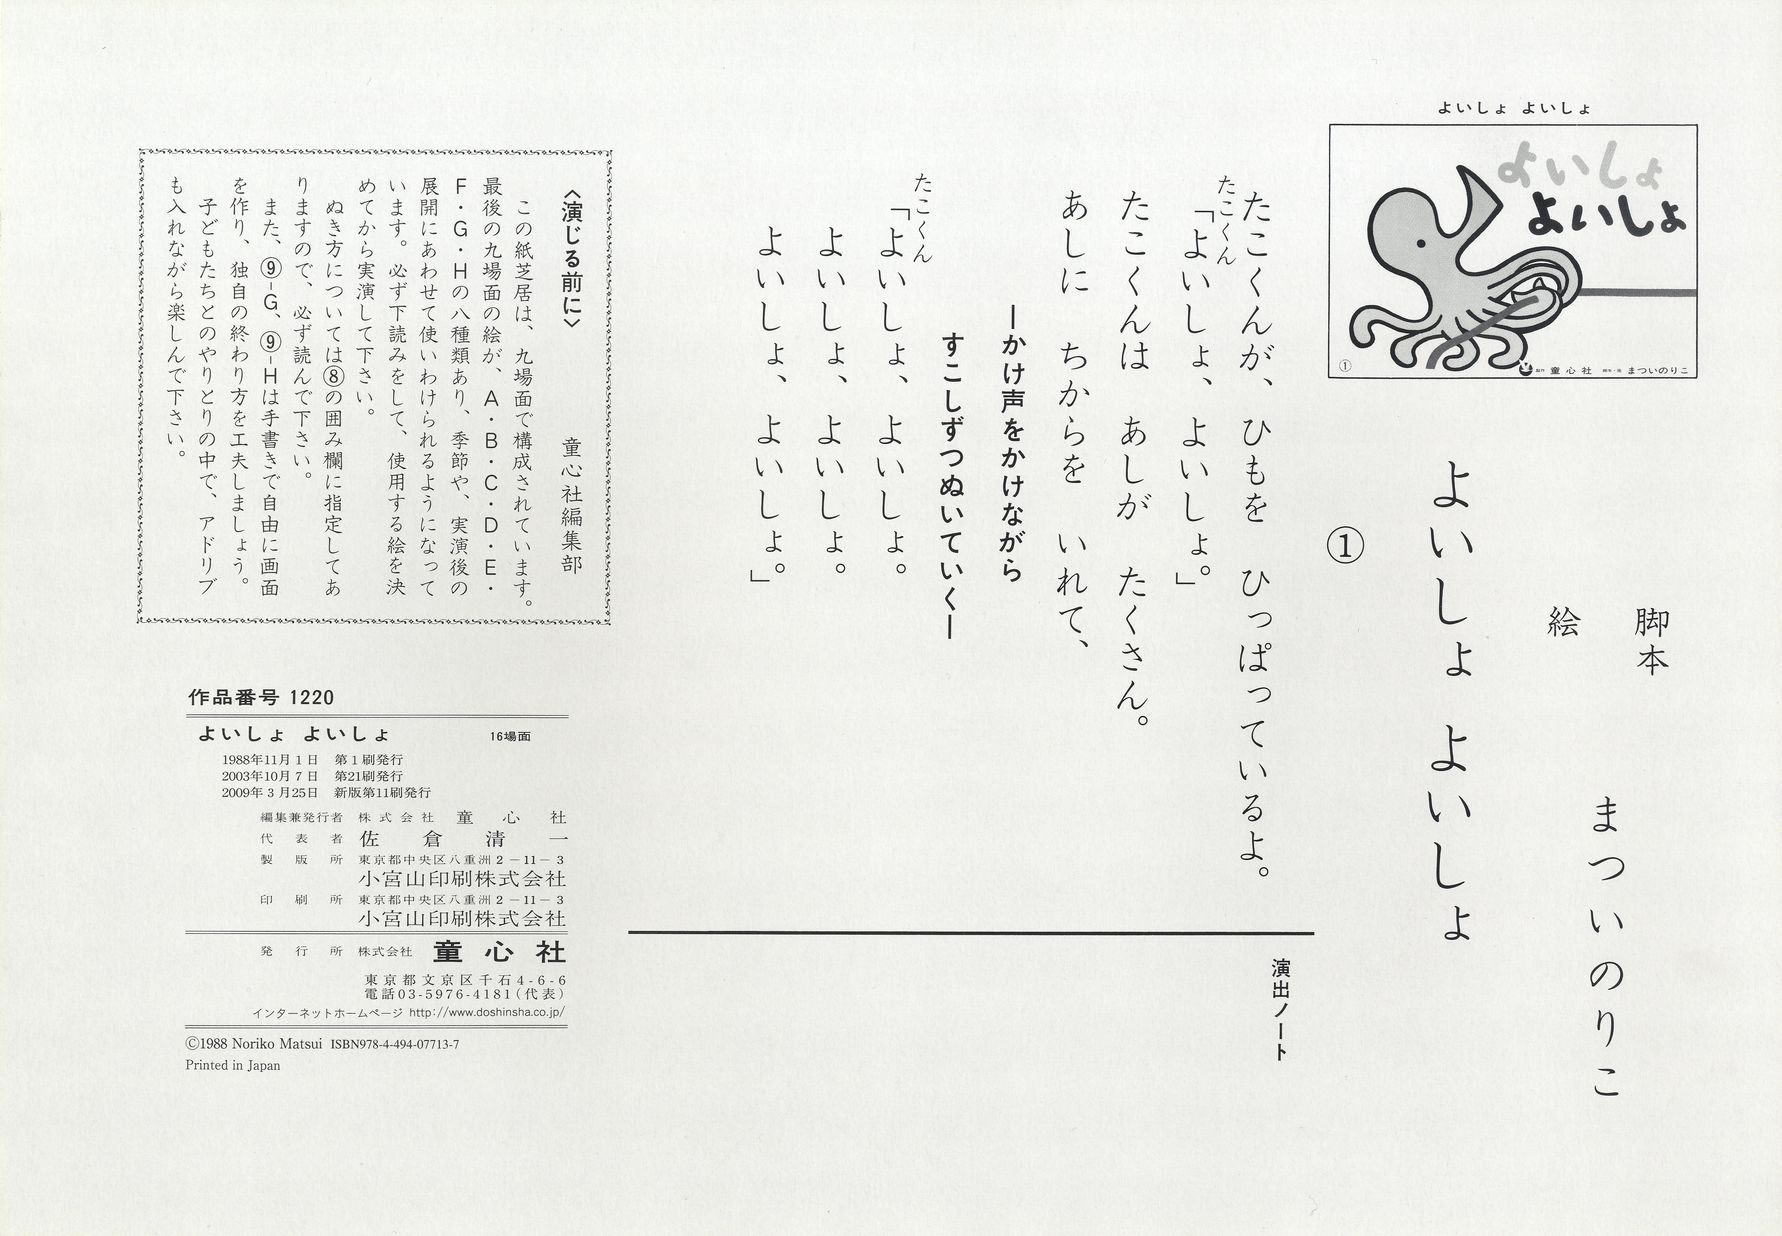 よいしょ よいしょ
よいしょ
よいしょ
①
童心社
まついのりこ
脚本
絵
まついのりこ
よいしょ よいしょ
①
たこくんが、ひもを ひっぱっているよ。
たこくん
「よいしょ、よいしょ。」
たこくんは あしが たくさん。
あしに ちからを いれて、
―かけ声をかけながら
すこしずつぬいていく―
たこくん
「よいしょ、よいしょ。
よいしょ、よいしょ。
よいしょ、よいしょ。」
演出ノート
〈演じる前に〉
童心社編集部
この紙芝居は、九場面で構成されています。
最後の九場面の絵が、A・B・C・D・E・
F・G・Hの八種類あり、季節や、実演後の
展開にあわせて使いわけられるようになって
います。必ず下読みをして、使用する絵を決
めてから実演して下さい。
ぬき方については⑧の囲み欄に指定してあ
りますので、必ず読んで下さい。
また、⑨-G、⑨-Hは手書きで自由に画面
を作り、独自の終わり方を工夫しましょう。
子どもたちとのやりとりの中で、アドリブ
も入れながら楽しんで下さい。
作品番号 1220
よいしょ よいしょ 16場面
1988年11月1日 第1刷発行
2003年10月7日 第21刷発行
2009年3月25日 新版第11刷発行
編集兼発行者 株式会社 童心社
代表者 佐倉清一
製版所 東京都中央区八重洲2-11-3
小宮山印刷株式会社
印刷所 東京都中央区八重洲2-11-3
小宮山印刷株式会社
発行所 株式会社 童心社
東京都文京区千石4-6-6
電話03-5976-4181(代表)
インターネットホームページ http://www.doshinsha.co.jp/
©1988 Noriko Matsui ISBN978-4-494-07713-7
Printed in Japan